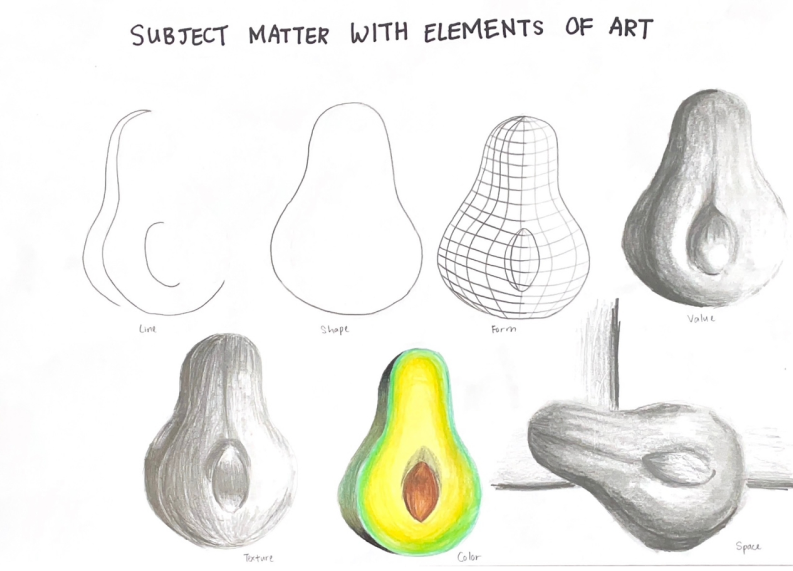 SUBJECT MATTER WITH ELEMENTS OF ART
Line
Shape
Form
Value
Texture
Color
Space